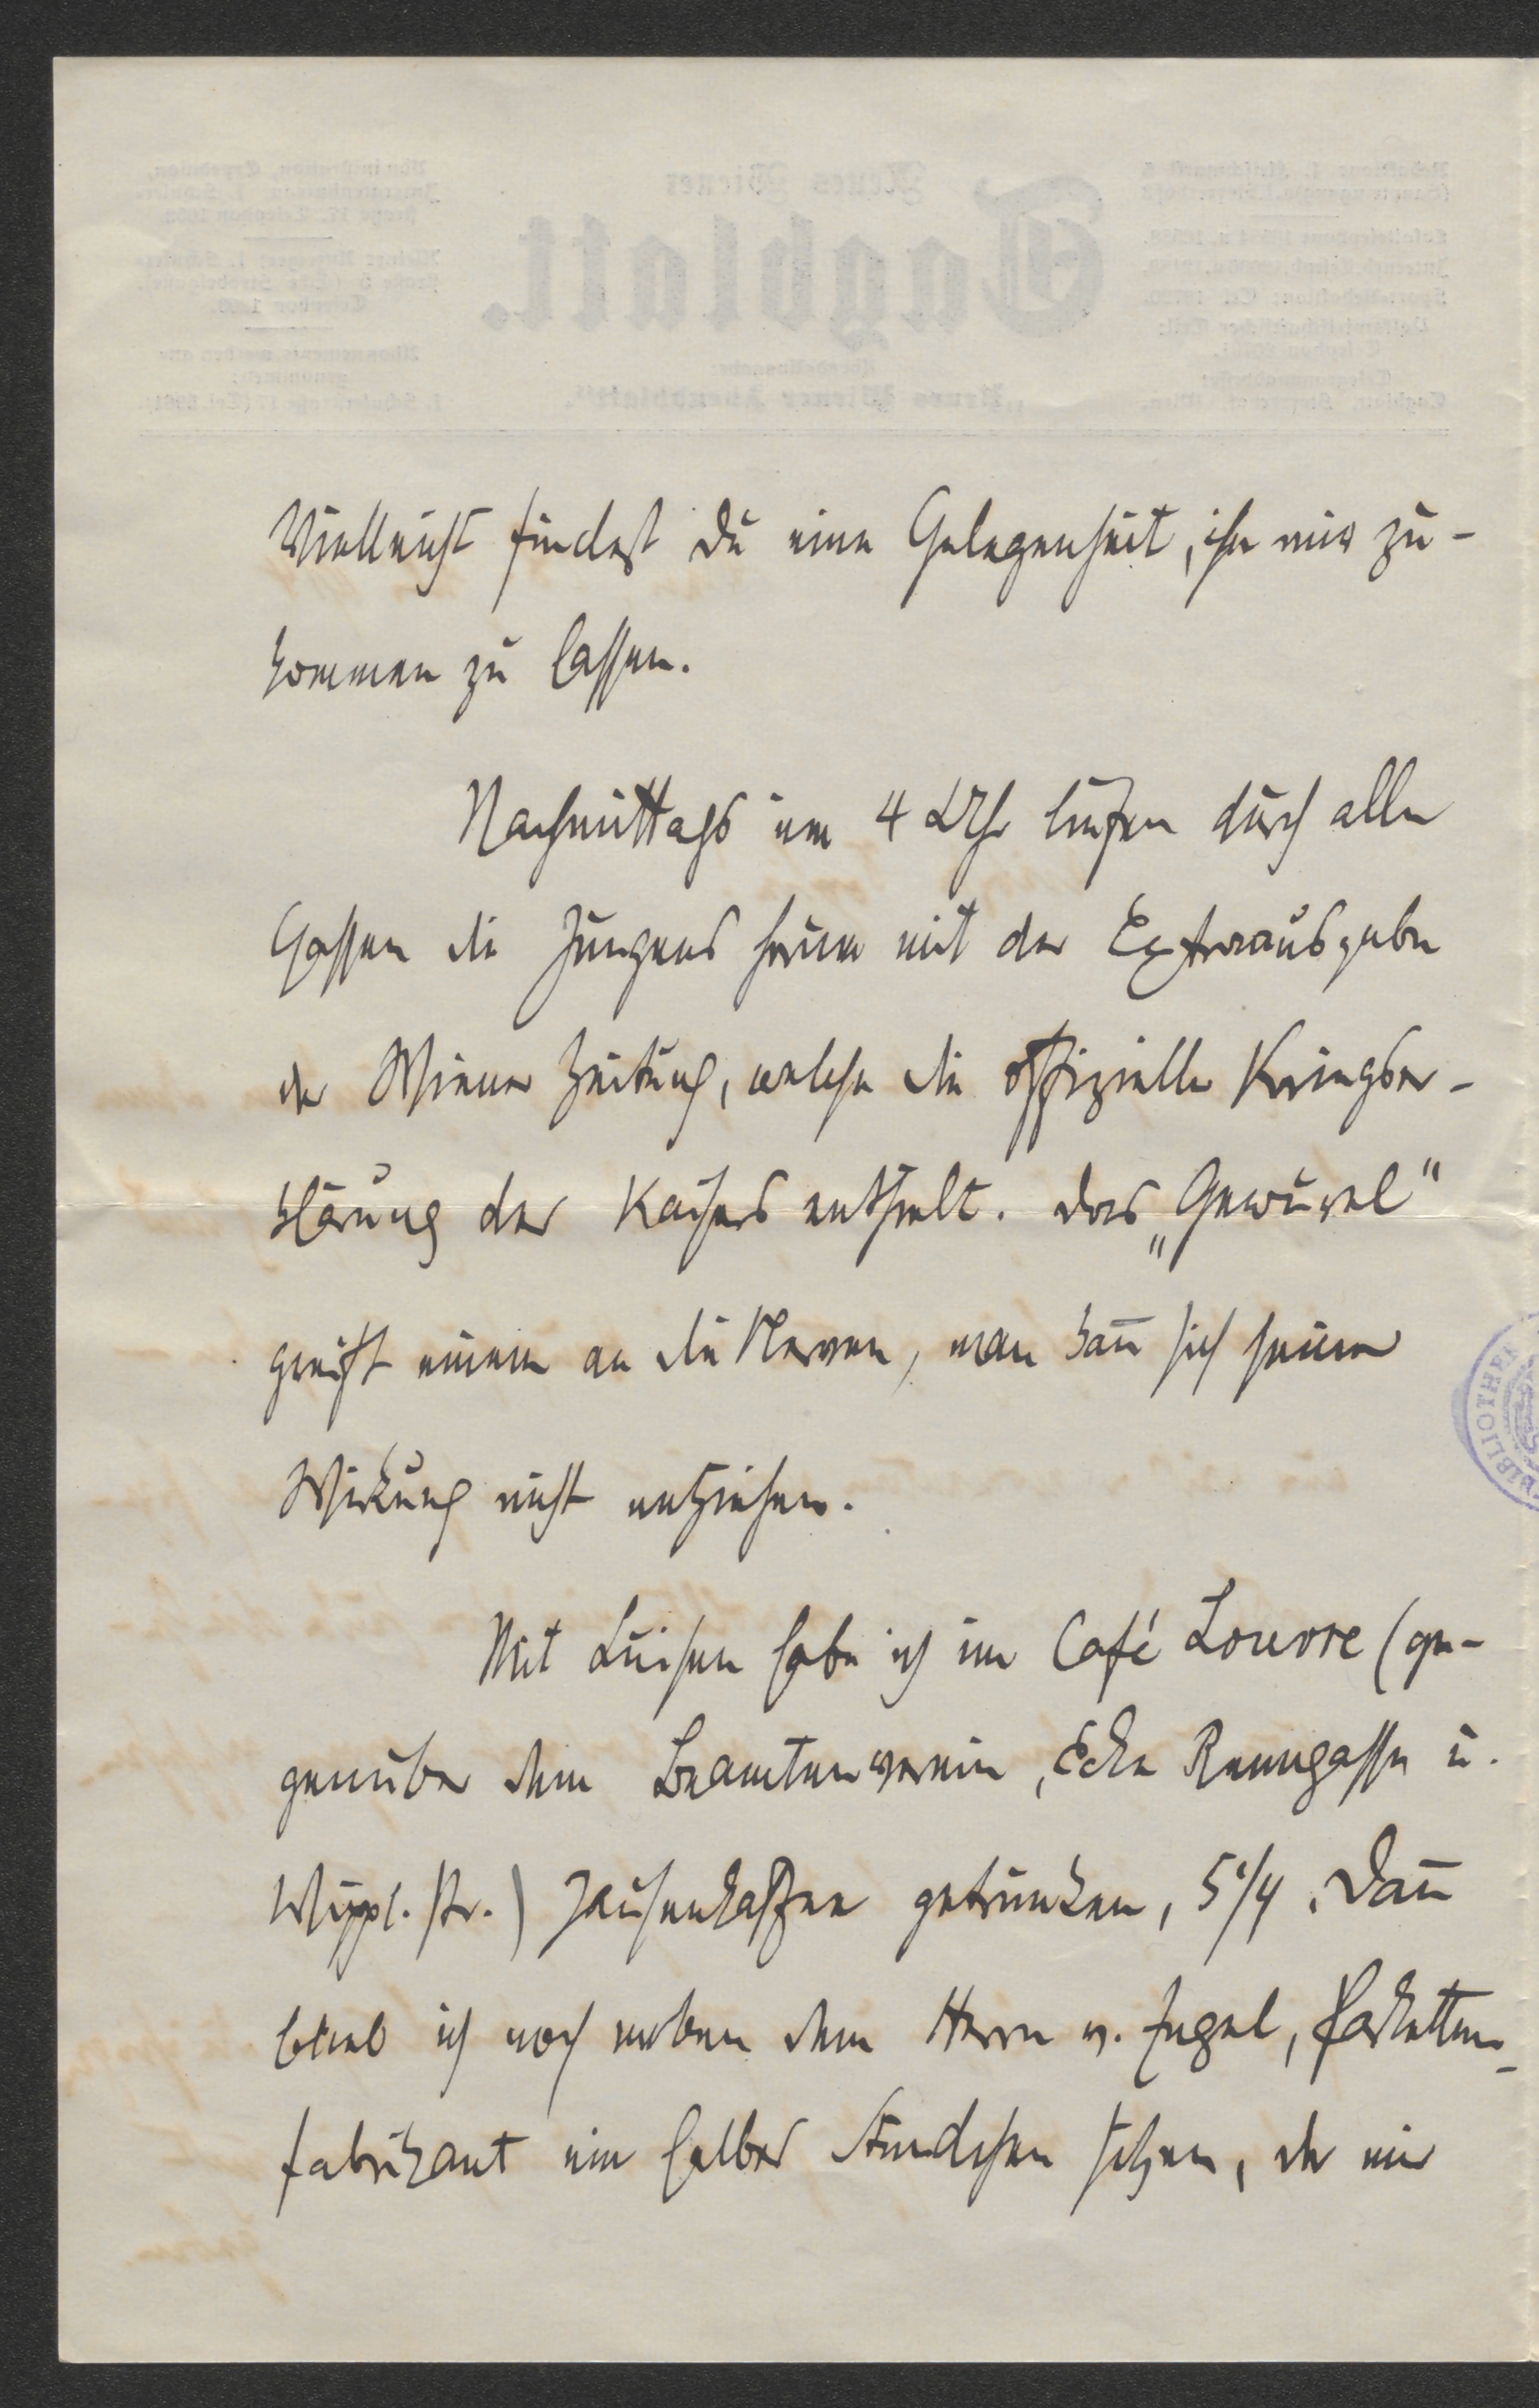 Vielleicht findest Du eine Gelegenheit, ihn mir zu-
kommen zu lassen.
Nachmittags um 4 Uhr liefen durch alle
Gassen die Jungens herum mit der Extraausgabe
der Wiener Zeitung, welche die offizielle Kriegser-
klärung des Kaisers enthielt. Das „Gewurel“
greift einem an die Nerven, man kan̄ sich seiner
Wirkung nicht entziehen.
Mit Luisen habe ich im Café Louvre (ge-
genüber dem Beamtenverein, Ecke Renngasse u.
Wippl. str.) Jausenkaffee getrunken, 5 1/4. Dan̄
blieb ich noch neben dem Herrn v. Engel, Parketten-
fabrikant ein halbes Stündchen sitzen, der mir
BIBLIOTHEK